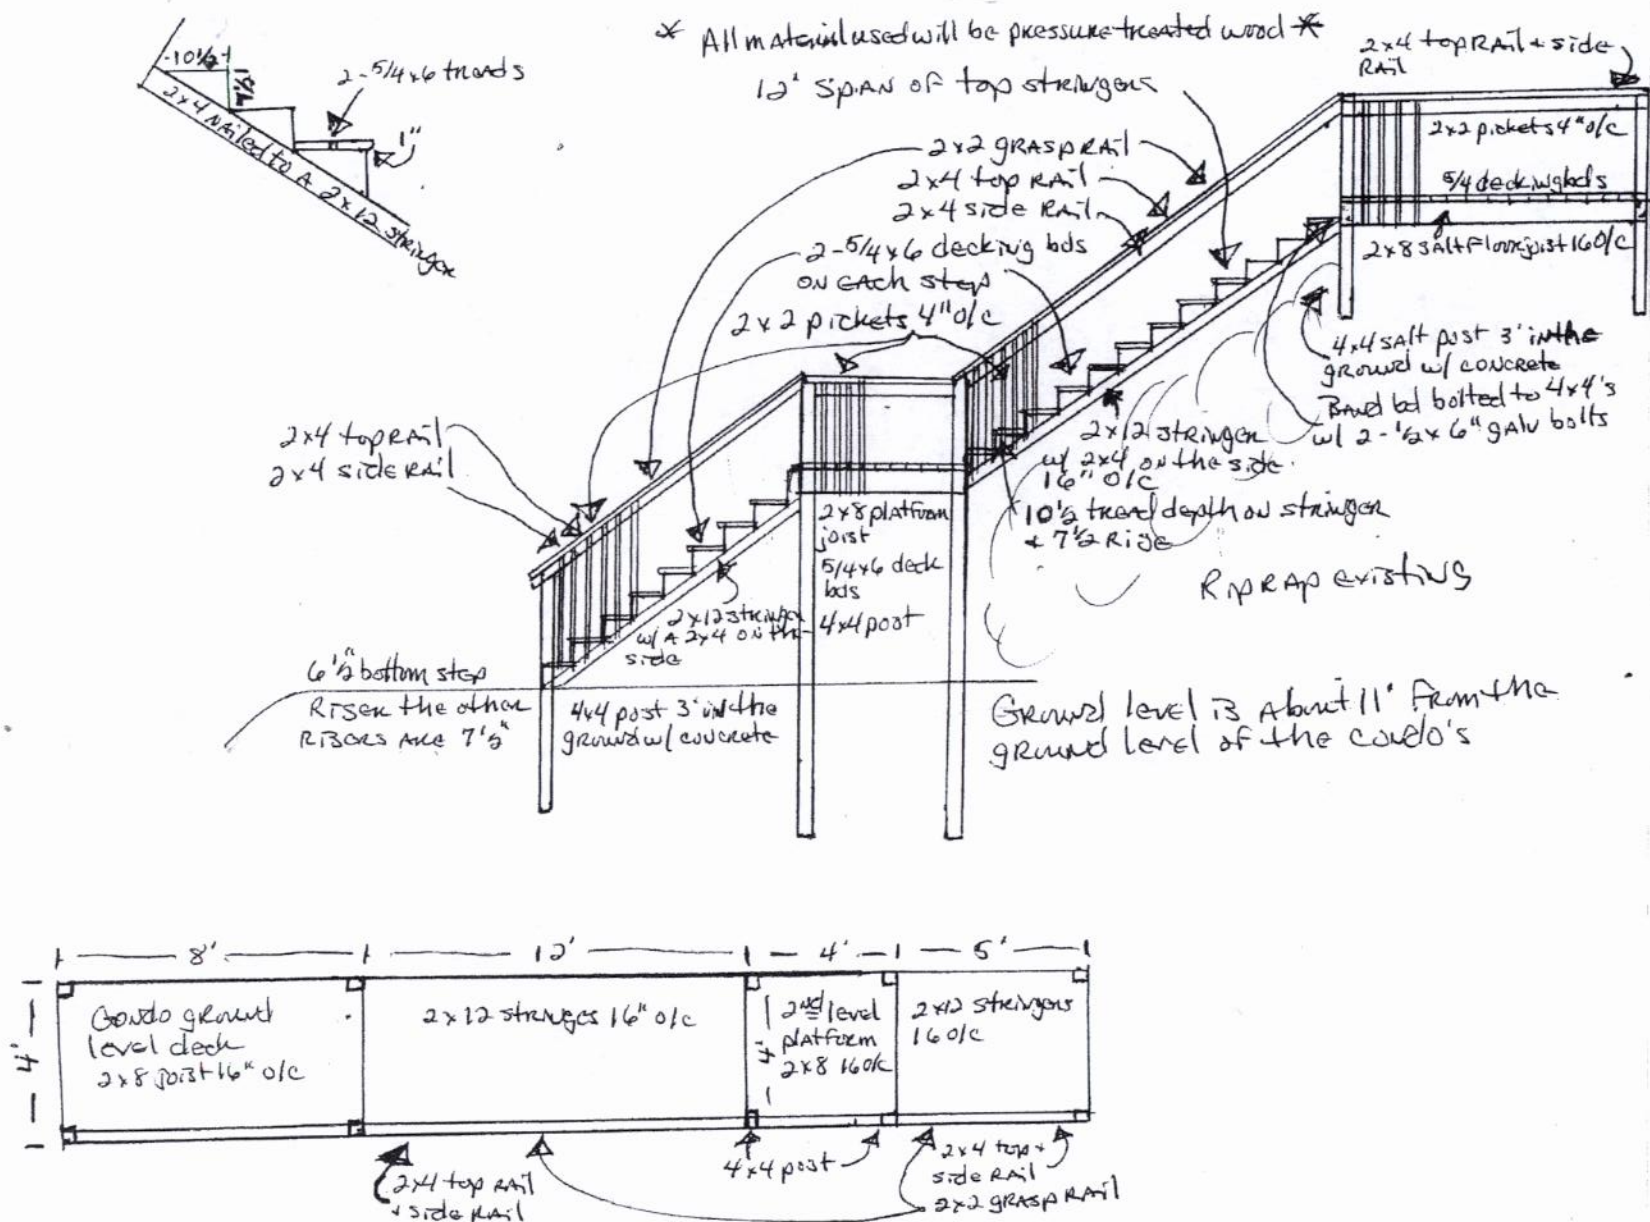 * All material used will be pressure treated wood *
-10 1/2-
7 1/2
2-5/4x6 treads
1"
2x4 nailed to a 2x12 stringer
12' span of top stringers
2x4 top rail + side
rail
2x2 pickets 4" o/c
5/4 decking bds
2x8 salt floor joist 16 o/c
2x2 grasp rail
2x4 top rail
2x4 side rail
2-5/4x6 decking bds
on each step
2x2 pickets 4" o/c
4x4 salt post 3' in the
ground w/ concrete
Band bd bolted to 4x4's
w/ 2-1/2x6" galv bolts
2x4 top rail
2x4 side rail
2x12 stringer
w/ 2x4 on the side
16" o/c
10 1/2 tread depth on stringer
+ 7 1/2 rise
2x8 platform
joist
5/4x6 deck
bds
4x4 post
2x12 stringer
w/ a 2x4 on the
side
Rip rap existing
6 1/2" bottom step
riser the other
risers are 7 1/2"
4x4 post 3' in the
ground w/ concrete
Ground level is about 11' from the
ground level of the condo's
8'
12'
4'
5'
4'
Condo ground
level deck
2x8 joist 16" o/c
2x12 stringes 16" o/c
4'
2nd level
platform
2x8 16 o/c
2x12 stringers
16 o/c
2x4 top rail
+ side rail
4x4 post
2x4 top +
side rail
2x2 grasp rail